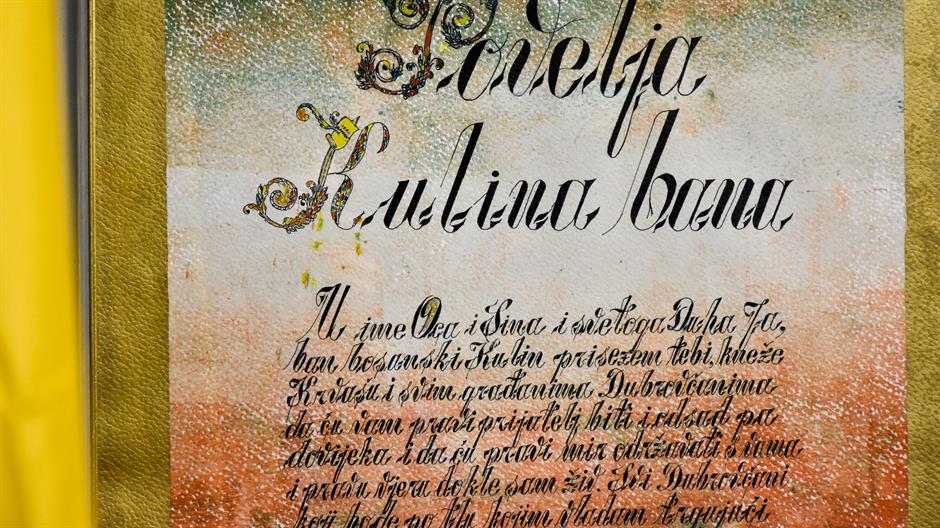 Povelja
Kulina bana
U ime Oca i Sina i svetoga Duha Ja,
ban bosanski Kulin prisežem tebi, kneže
Krvašu i svim građanima Dubrovčanima
da ću vam pravi prijatelj biti i odsad pa
dovijeka i da ću pravi mir održavati s vama
i pravu vjeru dokle sam živ. Svi Dubrovčani
koji hode po tlu kojim vladam trgujući,